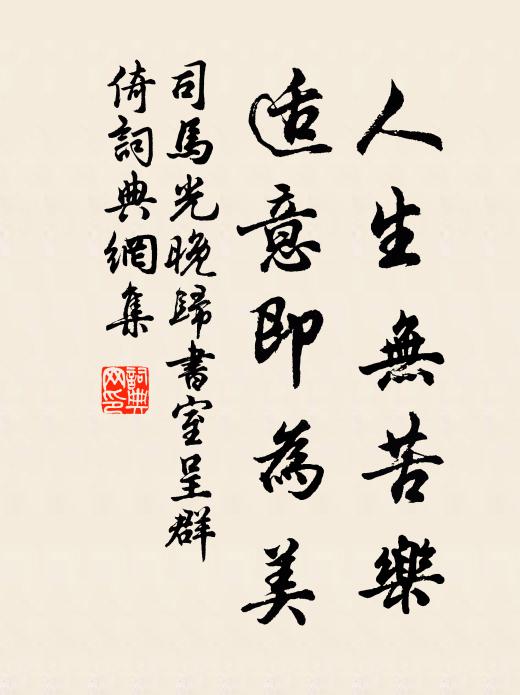 人生無苦樂
适意即為美
司馬光晚歸書室呈群
倚詞典網集
詞典
网印